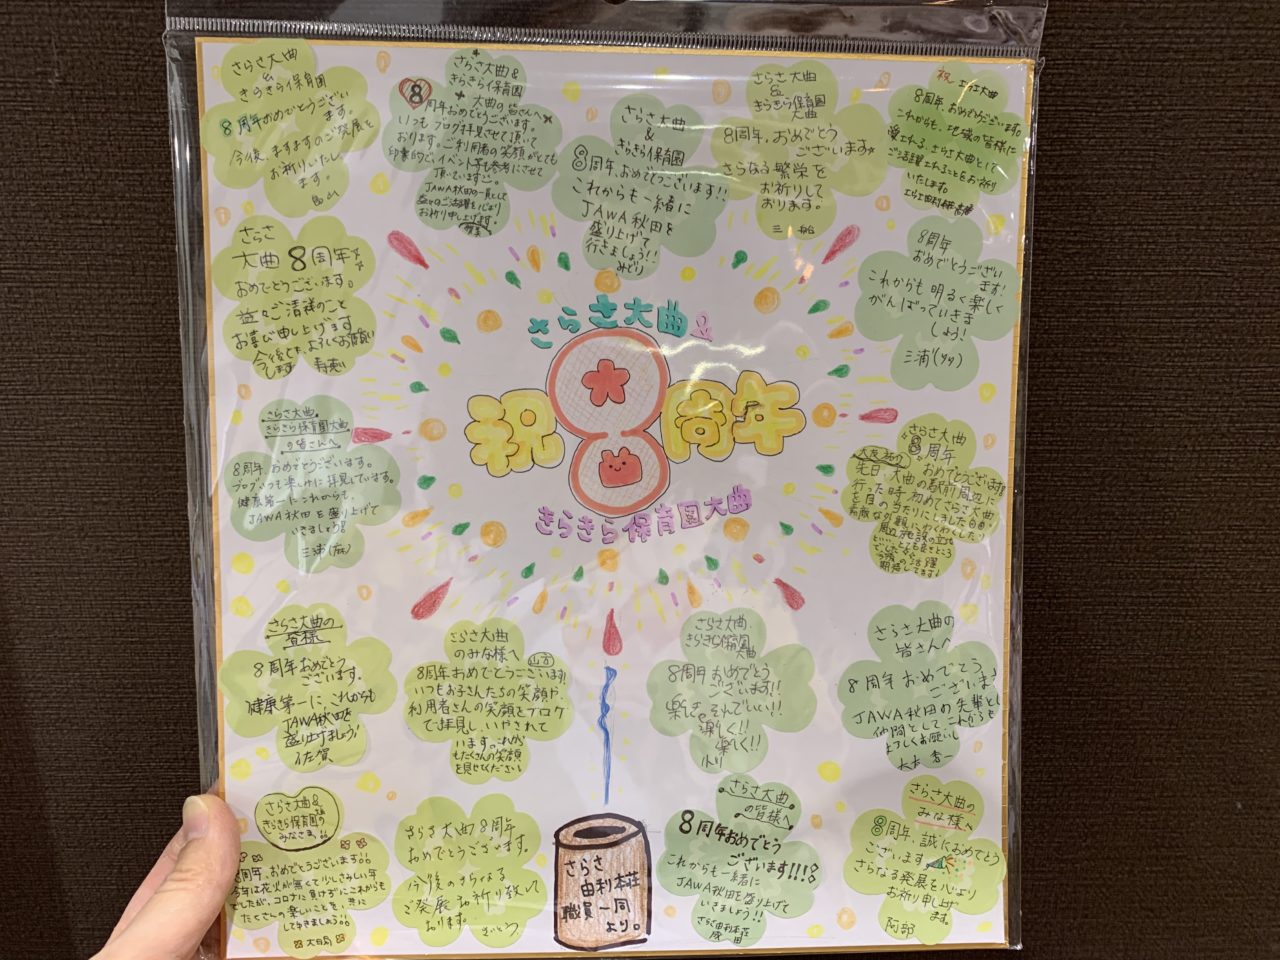 さらさ大曲
&
きらきら保育園
8周年おめでとうござい
ます。
今後、ますますのご発展を
お祈りいたし
ます。
さらさ大曲&
きらきら保育園
大曲の皆さんへ
8周年おめでとうございます。
いつもブログ拝見させて頂いて
おります。ご利用者の笑顔がとても
印象的で、イベント等も参考にさせて
頂いています。
JAWA秋田の一員として
益々のご活躍を心より
お祈り申し上げます。
さらさ大曲
&
きらきら保育園
8周年、おめでとうございます!!
これからも一緒に
JAWA秋田を
盛り上げて
行きましょう!!
みどり
さらさ大曲
&
きらきら保育園
大曲
8周年、おめでとう
ございます
さらなる繁栄を
お祈りして
おります。
三船
祝
8周年おめでとうございます。
これからも、地域の皆様に
愛される、さらさ大曲として
ご活躍されることをお祈り
いたします
さらさ
大曲8周年
おめでとうございます。
益々ご清祥のこと
お喜び申し上げます
今後とも、よろしくお願い
します
8周年
おめでとうござい
ます!
これからも明るく楽しく
がんばっていきま
しょう!
さらさ大曲&
祝8周年
きらきら保育園大曲
さらさ大曲
きらきら保育園大曲
の皆さんへ
8周年、おめでとうございます。
ブログいつも楽しみに拝見しています。
健康第一にこれからも、
JAWA秋田を盛り上げて
いきましょう!!
さらさ大曲
8周年
おめでとうございます!!
先日、大曲の駅前周辺に
行った時、初めてさらさ大曲
を目の当たりにしました
今後の活躍
期待してます!
さらさ大曲の
皆様
8周年おめでとう
ございます。
健康第一に、これからも
JAWA秋田を
盛り上げましょう!
佐賀
さらさ大曲
のみな様へ
8周年おめでとうございます!
いつもお子さんたちの笑顔や、
利用者さんの笑顔をブログ
で拝見し、いやされて
います。これから
もたくさんの笑顔
を見せてください
さらさ大曲
きらきら保育園
大曲
8周年おめでとう
ございます!!
楽しき。それでいい!!
楽しく!!
楽しく!!
さらさ大曲の
皆さんへ
8周年おめでとう
ございます
JAWA秋田の先輩とし
仲間としてこれからも
よろしくお願いし
さらさ大曲&
きらきら保育園の
みなさま
8周年、おめでとうございます!!
今年は花火が無くて少しさみしい年
でしたが、コロナに負けずにこれからも
たくさんの楽しいことを、共に
していきましょう!!
さらさ大曲8周年
おめでとうございます。
今後のさらなる
ご発展お祈り致して
おります。
さいとう
さらさ
由利本荘
職員一同
より。
さらさ大曲
の皆様へ
8周年おめでとう
ございます!!!
これからも一緒に
JAWA秋田を盛り上げて
いきましょう!!
さらさ由利本荘
さらさ大曲の
みな様へ
8周年、誠におめでとう
ございます
さらなる発展を心より
お祈り申し上げ
ます。
阿部